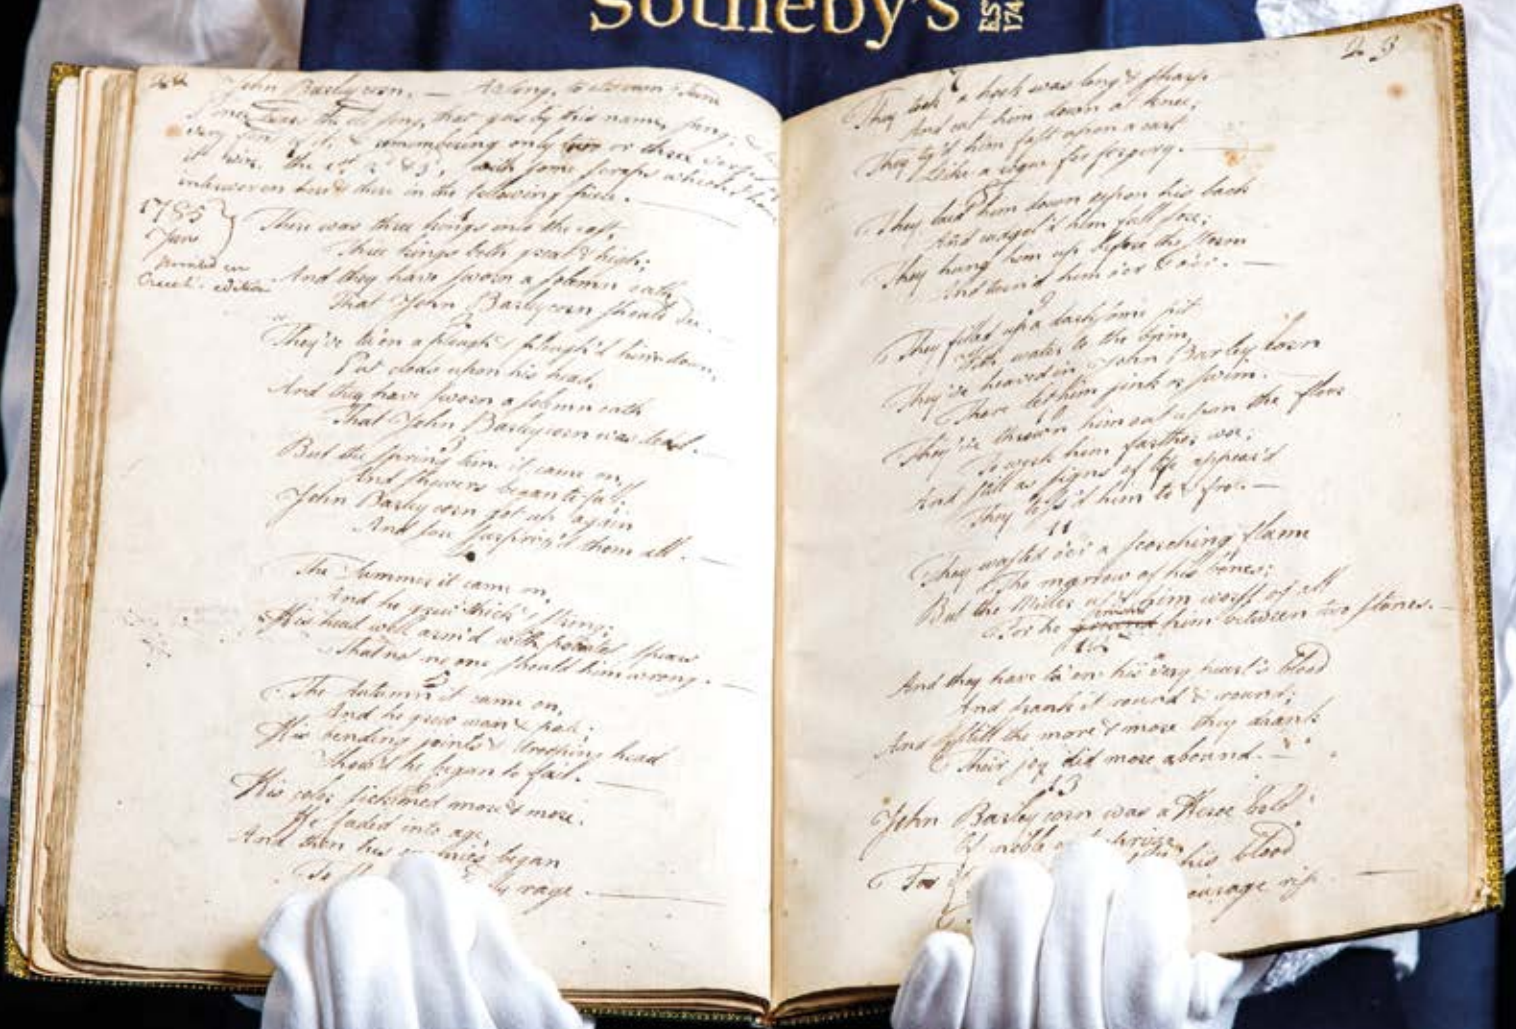 Sotheby's EST 174
22
John Barleycorn. — A Song, to its own Tune
I once knew the old song, that goes by this name, sung; &
very fond of it, & remembering only two or three verses
it viz. the 1st 2d & 3d, with some scraps which I have
interwoven here & there in the following piece. —
1785
June
Printed in
Creech's edition
There was three kings into the east,
Three kings both great & high;
And they have sworn a solemn oath
That John Barleycorn should die. —
2
They've ta'en a plough & plough'd him down,
Put clods upon his head,
And they have sworn a solemn oath
That John Barleycorn was dead. —
3
But the spring time it came on,
And showers began to fall;
John Barleycorn got up again
And sore surpris'd them all. —
The Summer it came on,
And he grew thick & strong;
His head well arm'd with pointed spears
That no one should him wrong. —
5
The Autumn it came on,
And he grew wan & pale;
His bending joints & drooping head
Show'd he began to fail. —
His color sicken'd more & more,
He faded into age,
And then his enemies began
To rage. —
23
7
They took a hook was long & sharp,
And cut him down at knee;
They ty'd him fast upon a cart
Like a rogue for forgery. —
8
They laid him down upon his back
And cudgel'd him full sore;
They hung him up before the storm
And turn'd him o'er & o'er. —
9
They filled up a darksome pit
With water to the brim,
They've heaved in John Barleycorn
There let him sink or swim. —
10
They've thrown him out upon the floor
To work him farther woe;
And still as signs of life appear'd
They toss'd him to & fro. —
11
They wasted o'er a scorching flame
The marrow of his bones;
But the Miller us'd him worst of all
For he him between two stones. —
12
And they have ta'en his very heart's blood
And drank it round & round;
And still the more & more they drank
Their joy did more abound. —
13
John Barleycorn was a Heroe bold
Of noble enterprize,
For his blood
courage rise —